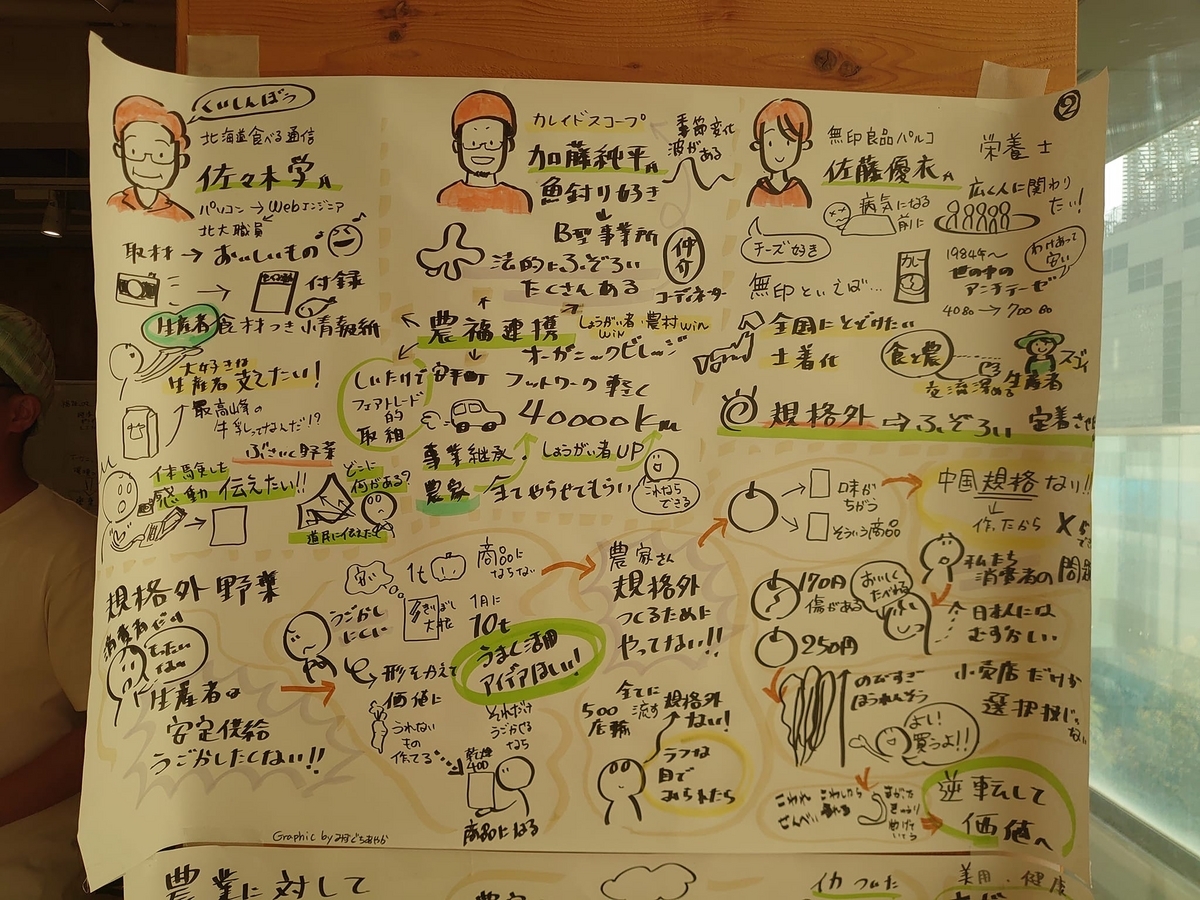 ②
くいしんぼう
北海道食べる通信
佐々木学さん
パソコン→Webエンジニア
北大職員
取材→おいしいもの
付録
生産者 食材つき情報紙
大好きな
生産者 支えたい!
最高峰の
牛乳ってなんだ!?
ぶさいく野菜
体験した
感動 伝えたい!!
どこに
何がある?
道民に伝えたい
カレイドスコープ
加藤純平さん
魚釣り好き
季節変化
波がある
B型事業所
法的にふぞろい
たくさんある
仲介
コーディネーター
農福連携
しょうがい者・農村win
win
オーガニックビレッジ
しいたけで
フェアトレード
的
取組
安平町
フットワーク軽く
40000km
事業継承。
しょうがい者UP
農家 全てやらせてもらい
これなら
できる
無印良品パルコ
佐藤優衣さん
栄養士
広く人に関わり
たい!
病気になる
前に
チーズ好き
無印といえば…
カレー
1984年〜
世の中の
アンチテーゼ
わけあって
安い
40品→7000品
全国にとどけたい
土着化
食と農
交流深める
生産者
スゴイ
規格外→ふぞろい 定着させ
規格外野菜
消費者だけ
もったい
ない
生産者は
安定供給
うごかしたくない!!
うごかし
にくい
1t
商品に
ならない
きりぼし
大根
1月に
10t
うまく活用
アイデアほしい!
形を変えて
価値に
うれない
もの
作ってる
それだけ
うごかせる
なら
乾燥
400
商品になる
農家さん
規格外
つくるために
やってない!!
全てに
500
店舗
流す
規格外
ない!
ラフな
目で
みちゃったら
口味が
ちがう
そういう商品
中国規格ない!!
作ったから
私たち
消費者の問題
おいしく
たべれる
170円
傷がある
250円
日本人には
むずかしい
のびすぎ
ほうれんそう
小売店だけが
選択肢じゃ
ない
よい!
買うよ!!
こわれ
せんべい
逆転して
価値へ
Graphic by みずぐちあやか
農業に対して
農家
イカつった
美用・健康